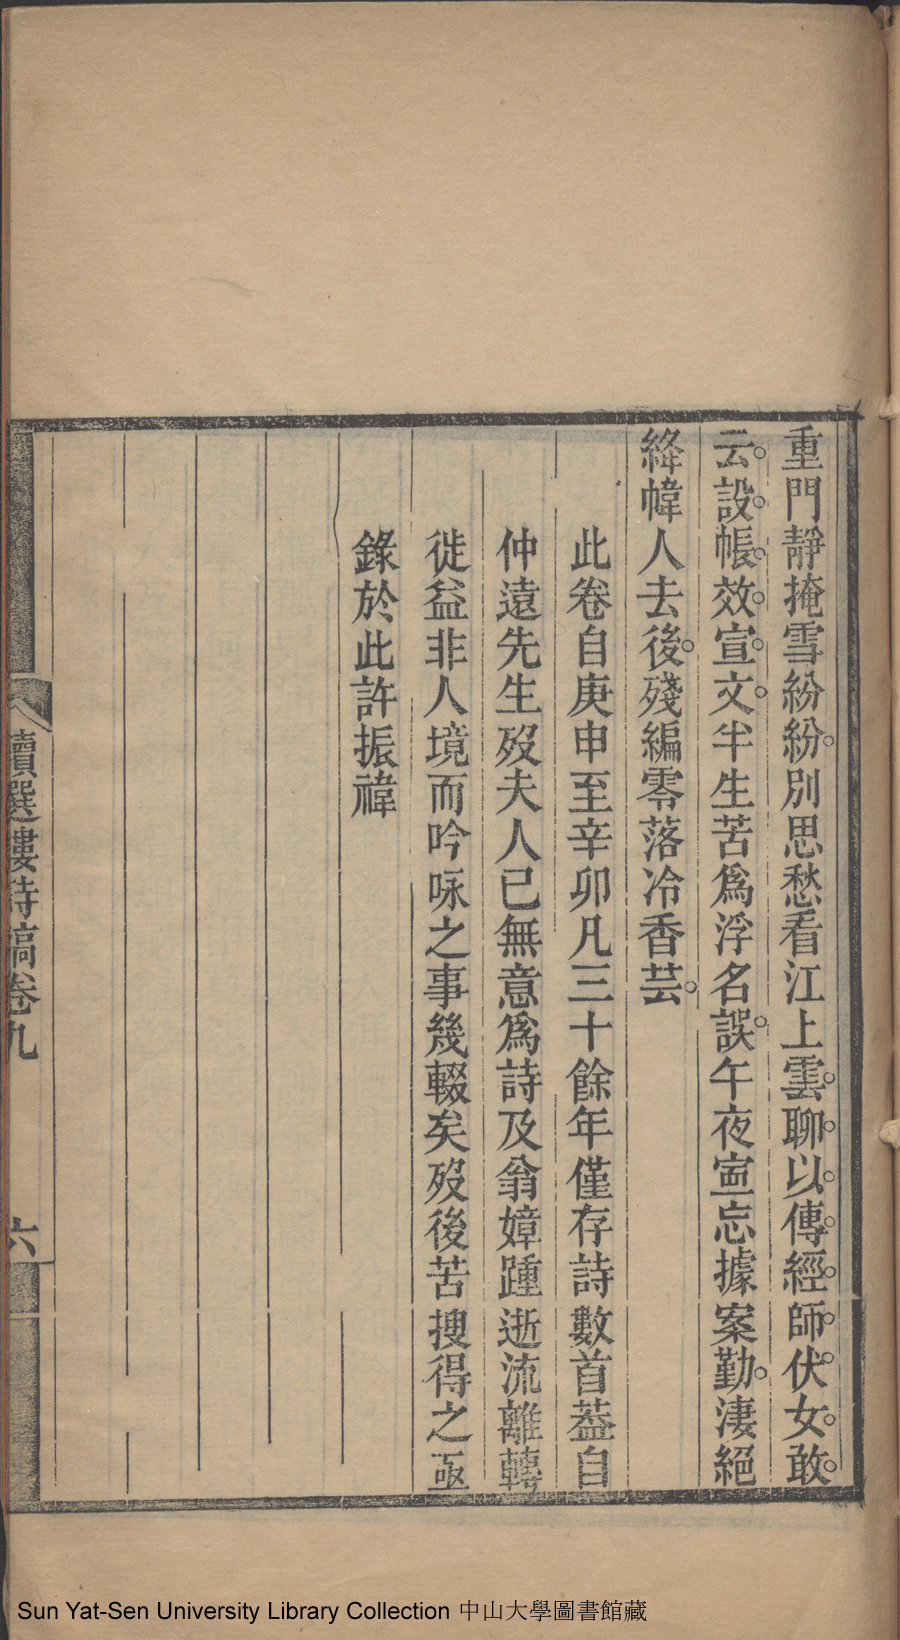 重門靜掩雪紛紛別思愁看江上雲聊以傳經師伏女敢
云設帳效宣文半生苦爲浮名誤午夜寍忘據案勤淒絕
絳幃人去後殘編零落冷香芸
此卷自庚申至辛卯凡三十餘年僅存詩數首葢自
仲遠先生歿夫人已無意爲詩及翁嫜踵逝流離轉
徙益非人境而吟咏之事幾輟矣歿後苦搜得之亟
錄於此許振禕
讀選樓詩稿卷九
六
Sun Yat-Sen University Library Collection 中山大學圖書館藏